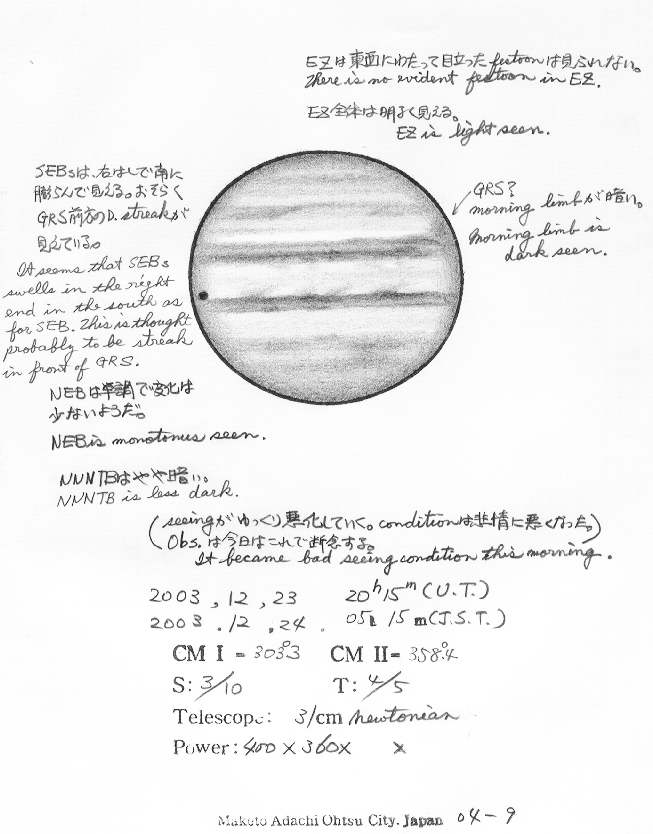 EZは東西にわたって目立ったfestoonは見られない。
There is no evident festoon in EZ.
EZ全体は明るく見える。
EZ is light seen.
SEBsは、右はしで南に
膨らんで見える。おそらく
GRS前方のD. streakが
見えている。
It seems that SEBs
swells in the right
end in the south as
for SEB. This is thought
probably to be streak
in front of GRS.
GRS?
morning limbが暗い。
Morning limb is
dark seen.
NEBは単調で変化は
少ないようだ。
NEB is monotonus seen.
NNNTBはやや暗い。
NNNTB is less dark.
(seeingがゆっくり悪化していく。conditionは非情に悪くなった。)
Obs.は今日はこれで断念する。
It became bad seeing condition this morning.
2003 , 12 , 23 20h 15m (U.T.)
2003 . 12 . 24 . 05h 15m (J.S.T.)
CM I = 303°.3 CM II= 358°.4
S: 3/10 T: 4/5
Telescope: 31cm newtonian
Power: 400 × 360× ×
Makoto Adachi Ohtsu City. Japan 04-9